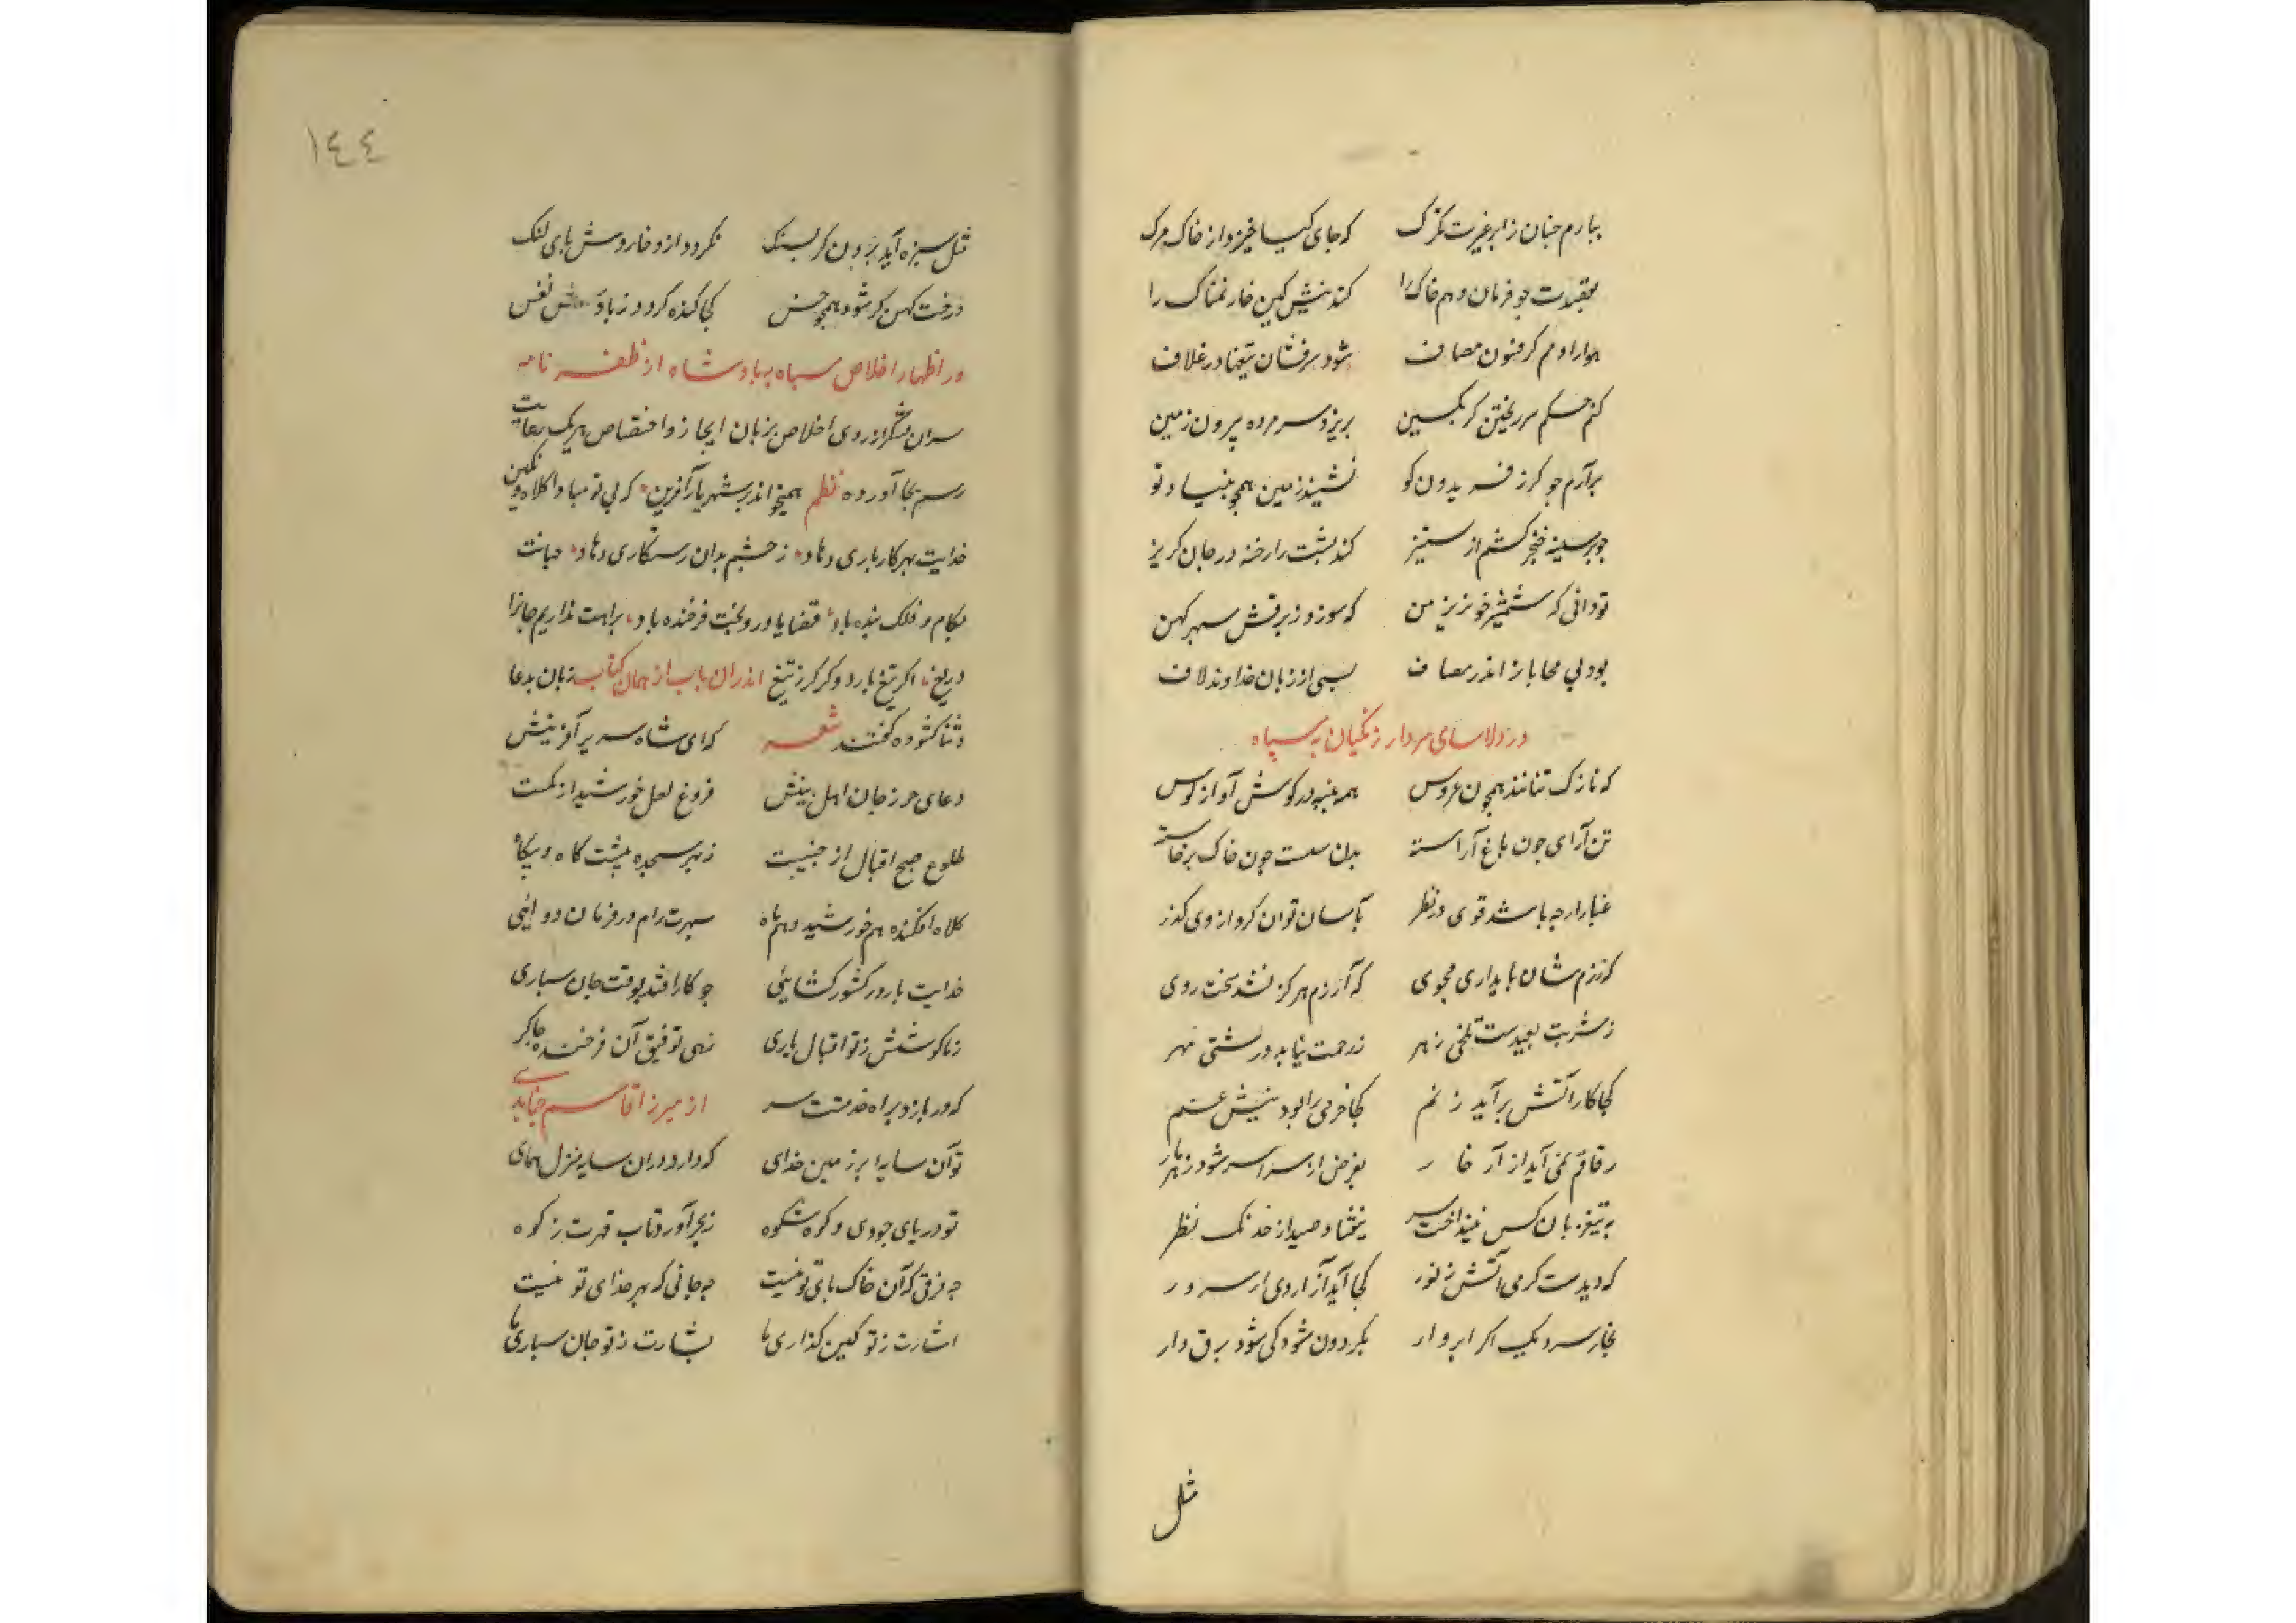 ببارم چنان زابر غیرت تگرگ که جای کیا خیزد از خاک مرک
بقیدت جو فرمان دهم خاک را کند نیش کین خار نمناک را
هوا را دهم کر فنون مصاف شود سرفشان تیغها در غلاف
کنم حکم سر ریختن کر بکین بریزد سر مرده بیرون زمین
برآرم جو کرز فریدون کو نشیند زمین همجو بنیاد تو
جو بر سینه خنجر کشم از ستیز کند پشت را رخنه در جان کریز
تو دانی که شمشیر خونریز من که سوزد ز برقش سپهر کهن
بود بی محابا تر اندر مصاف بسی از زبان خداوند لاف
در دلاسای سردار زنگیان به سپاه
که نازک تنانند همچون عروس همه پنبه در کوش آواز کوس
تن آرای جون باغ آراسته بدن سست جون خاک برخاسته
غبار ارچه باشد قوی در نظر بآسان توان کرد از وی کذر
که رزم شان پایداری مجوی که آزرم هرکز نشد سخت روی
ز شربت بعیدست تلخی زهر ز رحمت نیاید درشتی قهر
کجا کار آتش برآید ز نم کجا خرمی را بود نیش غم
رقاقم نمی آید آزار خار بفرض از سراسر شود زهر مار
به تیغ زبان کس نینداخت سر نیفتاد صید از خدنک نظر
که دیدست کرمی آتش ز نور کجا آید آزاردی از سرور
بخار سر دیک اکر ابروار بکردون شود کی شود برق دار
مثل
١٤٤
مثل سبزه آید برون کر بسنک نکردد ازو خار و سش پای لنک
درخت کهن کر شود همچو خس کجا کنده کردد ز باد نفس
در اظهار اخلاص سپاه به پادشاه از ظفر نامه
سران لشکر از روی اخلاص بزبان ایجاز و اختصاص هریک رعایت
رسم بجا آورده نظم همیخواند بر شهریار آفرین که بی تو مبادا کلاه و نکین
خدایت بهر کار یاری دهاد ز چشم بدان رستکاری دهاد جهانت
بکام و فلک بنده باد قضا یاور و بخت فرخنده باد براهت نداریم جانرا
دریغ اکر تیغ بارد وکر کرز تیغ اندران باب از همان کتاب زبان بدعا
و ثنا کشوده کفتند شعر که ای شاه سریر آفرینش
دعای حرز جان اهل بینش فروغ لعل خورشید از نکینت
طلوع صبح اقبال از جبینت ز بهر سجده پیشت کاه و بیکاه
کلاه افکنده هم خورشید و هم ماه سپهرت رام در فرمان دوائی
خدایت یاور کشور کشایی جو کار افتد بوقت جان سپاری
ز ما کوشش ز تو اقبال یاری زهی توفیق آن فرخنده چاکر
که دربازد براه خدمتت سر از میرزا قاسم جنابدی
تو آن سایه ابر زمین خدای که دارد دران سایه منزل همای
تو دریای جودی و کوه شکوه ز بحر آورد تاب قهرت ز کوه
چه فرقی که آن خاک پای تو نیست چه جانی که بهر فدای تو نیست
اشارت ز تو کین کذاری ز ما بشارت ز تو جان سپاری ز ما